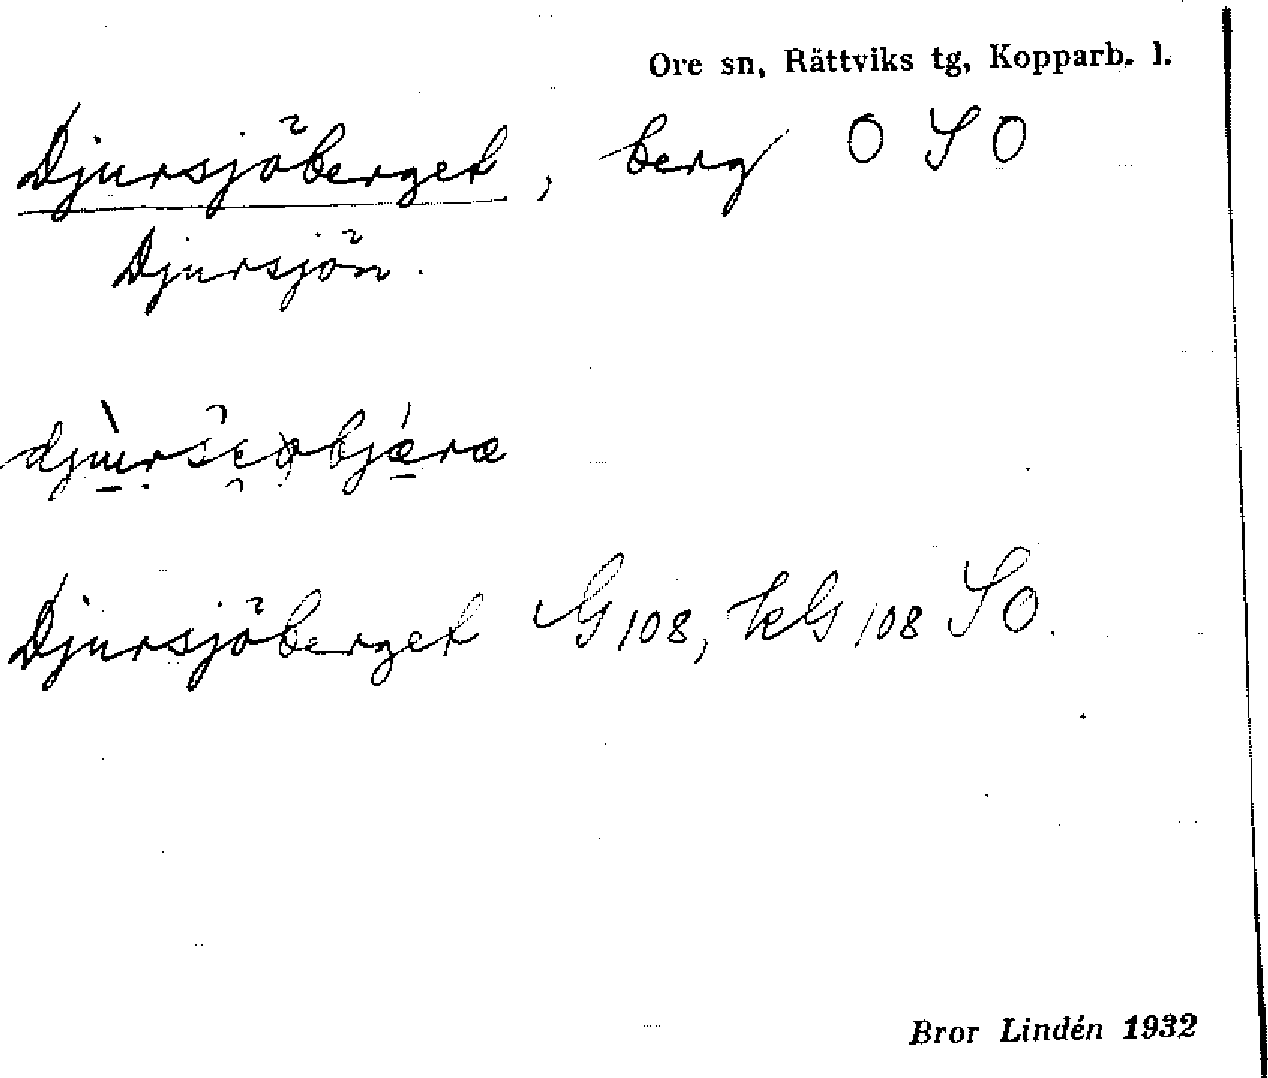 Ore sn, Rättviks tg, Kopparb. l.
Djursjöberget, berg O S O
Djursjön.
Djursjöberget G 108, kG 108 S O.
Bror Lindén 1932